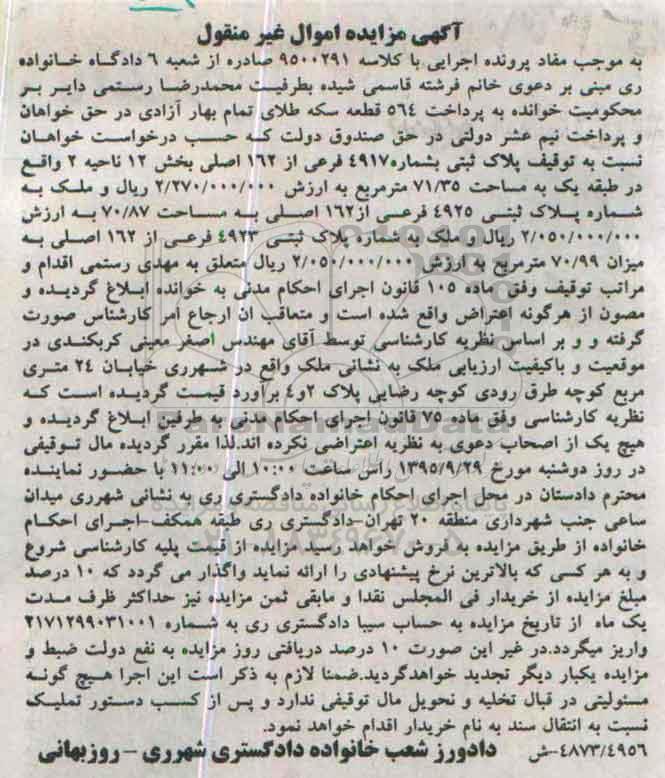 آگهی مزایده اموال غیر منقول
به موجب مفاد پرونده اجرایی با کلاسه ۹۵۰۰۲۹۱ صادره از شعبه ۶ دادگاه خانواده
ری مبنی بر دعوی خانم فرشته قاسمی شیده بطرفیت محمدرضا رستمی دایر بر
محکومیت خوانده به پرداخت ۵۶۴ قطعه سکه طلای تمام بهار آزادی در حق خواهان
و پرداخت نیم عشر دولتی در حق صندوق دولت که حسب درخواست خواهان
نسبت به توقیف پلاک ثبتی بشماره۴۹۱۷ فرعی از ۱۶۲ اصلی بخش ۱۲ ناحیه ۲ واقع
در طبقه یک به مساحت ۷۱/۳۵ مترمربع به ارزش ۲/۲۷۰/۰۰۰/۰۰۰ ریال و ملک به
شماره پلاک ثبتی ۴۹۲۵ فرعی از۱۶۲ اصلی به مساحت ۷۰/۸۷ به ارزش
۲/۰۵۰/۰۰۰/۰۰۰ ریال و ملک به شماره پلاک ثبتی ۴۹۲۳ فرعی از ۱۶۲ اصلی به
میزان ۷۰/۹۹ مترمربع به ارزش ۲/۰۵۰/۰۰۰/۰۰۰ ریال متعلق به مهدی رستمی اقدام و
مراتب توقیف وفق ماده ۱۰۵ قانون اجرای احکام مدنی به خوانده ابلاغ گردیده و
مصون از هرگونه اعتراض واقع شده است و متعاقب ان ارجاع امر کارشناس صورت
گرفته و و بر اساس نظریه کارشناسی توسط آقای مهندس اصغر معینی کربکندی در
موقعیت و باکیفیت ارزیابی ملک به نشانی ملک واقع در شهرری خیابان ۲۴ متری
مربع کوچه طرق رودی کوچه رضایی پلاک ۲و۴ برآورد قیمت گردیده است که
نظریه کارشناسی وفق ماده ۷۵ قانون اجرای احکام مدنی به طرفین ابلاغ گردیده و
هیچ یک از اصحاب دعوی به نظریه اعتراضی نکرده اند.لذا مقرر گردیده مال توقیفی
در روز دوشنبه مورخ ۱۳۹۵/۹/۲۹ راس ساعت ۱۰:۰۰ الی ۱۱:۰۰ با حضور نماینده
محترم دادستان در محل اجرای احکام خانواده دادگستری ری به نشانی شهرری میدان
ساعی جنب شهرداری منطقه ۲۰ تهران-دادگستری ری طبقه همکف-اجرای احکام
خانواده از طریق مزایده به فروش خواهد رسید مزایده از قیمت پلیه کارشناسی شروع
و به هر کسی که بالاترین نرخ پیشنهادی را ارائه نماید واگذار می گردد که ۱۰ درصد
مبلغ مزایده از خریدار فی المجلس نقدا و مابقی ثمن مزایده نیز حداکثر ظرف مدت
یک ماه از تاریخ مزایده به حساب سیبا دادگستری ری به شماره ۲۱۷۱۲۹۹۰۳۱۰۰۱
واریز میگردد.در غیر این صورت ۱۰ درصد دریافتی روز مزایده به نفع دولت ضبط و
مزایده یکبار دیگر تجدید خواهدگردید.ضمنا لازم به ذکر است این اجرا هیچ گونه
مسئولیتی در قبال تخلیه و تحویل مال توقیفی ندارد و پس از کسب دستور تملیک
نسبت به انتقال سند به نام خریدار اقدام خواهد نمود.
۴۸۷۳/۴۹۵۶-ش دادورز شعب خانواده دادگستری شهرری - روزبهانی